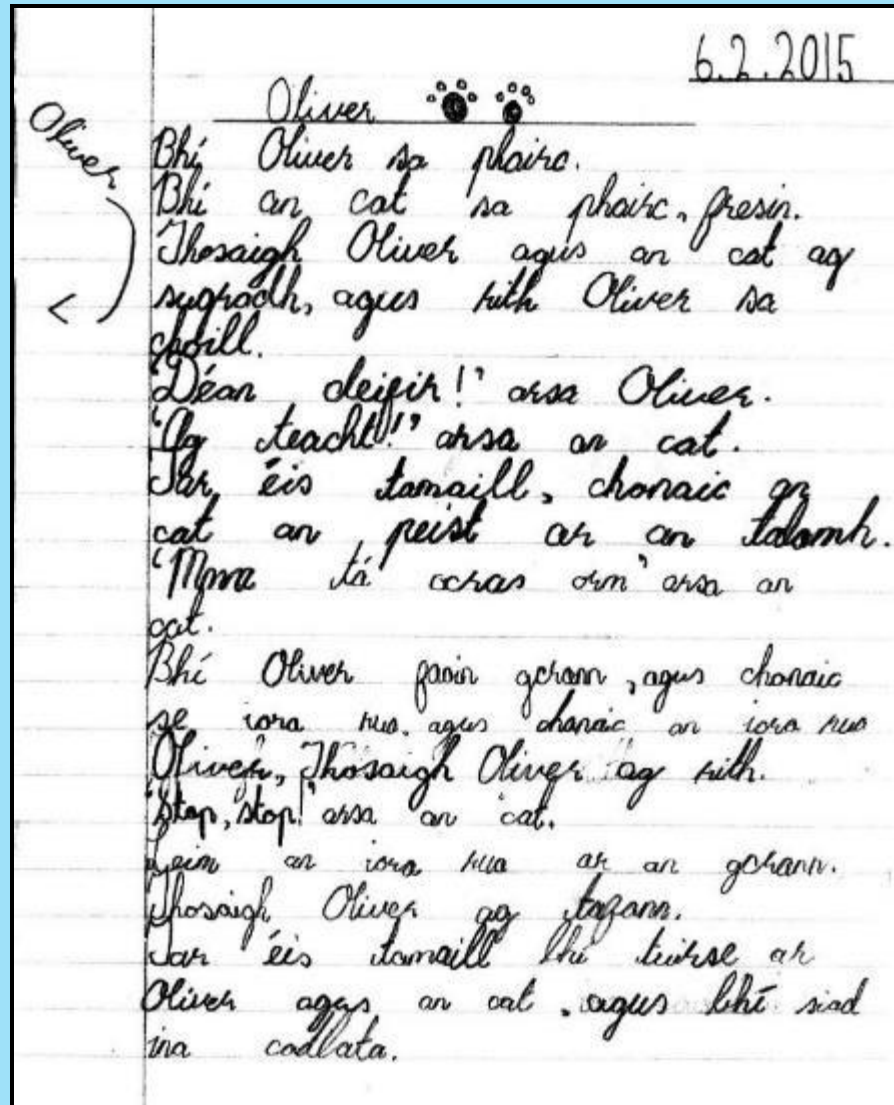 6.2.2015
Oliver
Oliver
Bhí Oliver sa pháirc.
Bhí an cat sa phairc, freisin.
Thosaigh Oliver agus an cat ag
sugradh, agus rith Oliver sa
choill.
'Déan deifir!' arsa Oliver.
'Ag teacht!' arsa an cat.
Tar éis tamaill, chonaic an
cat an peist ar an talamh.
'Mmm tá ocras orm' arsa an
cat.
Bhí Oliver faoin gcrann, agus chonaic
se iora rua, agus chonaic an iora rua
Oliver, Thosaigh Oliver ag rith.
'Stop, stop!' arsa an cat.
Leim an iora rua ar an gcrann.
Thosaigh Oliver ag tafann.
Tar éis tamaill bhí tuirse ar
Oliver agus an cat, agus bhí siad
ina codlata.